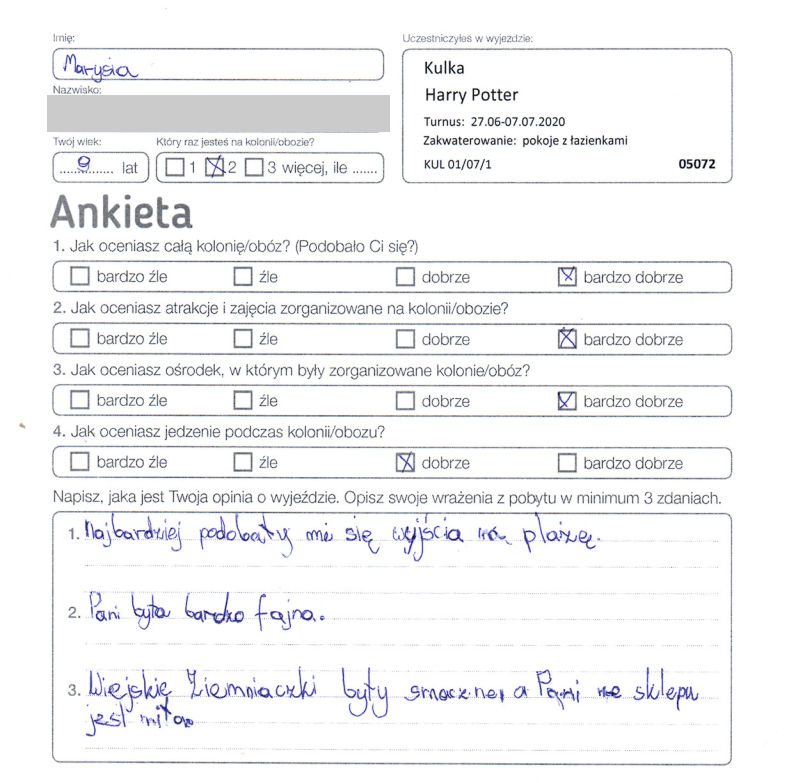 Imię:
Uczestniczyłeś w wyjeździe:
Marysia
Kulka
Nazwisko:
Harry Potter
Turnus: 27.06-07.07.2020
Zakwaterowanie: pokoje z łazienkami
KUL 01/07/1 05072
Twój wiek: Który raz jesteś na kolonii/obozie?
9 lat 1 2 3 więcej, ile .......
Ankieta
1. Jak oceniasz całą kolonię/obóz? (Podobało Ci się?)
bardzo źle źle dobrze bardzo dobrze
2. Jak oceniasz atrakcje i zajęcia zorganizowane na kolonii/obozie?
bardzo źle źle dobrze bardzo dobrze
3. Jak oceniasz ośrodek, w którym były zorganizowane kolonie/obóz?
bardzo źle źle dobrze bardzo dobrze
4. Jak oceniasz jedzenie podczas kolonii/obozu?
bardzo źle źle dobrze bardzo dobrze
Napisz, jaka jest Twoja opinia o wyjeździe. Opisz swoje wrażenia z pobytu w minimum 3 zdaniach.
1. Najbardziej podobały mi się wyjścia na plażę.
2. Pani była bardzo fajna.
3. Wiejskie Ziemniaczki były smaczne, a Pani ze sklepu
jest miła